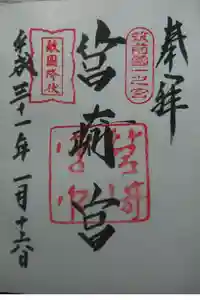 奉拝
筑前國一之宮
筥崎宮
敵國降伏
平成三十一年一月十六日